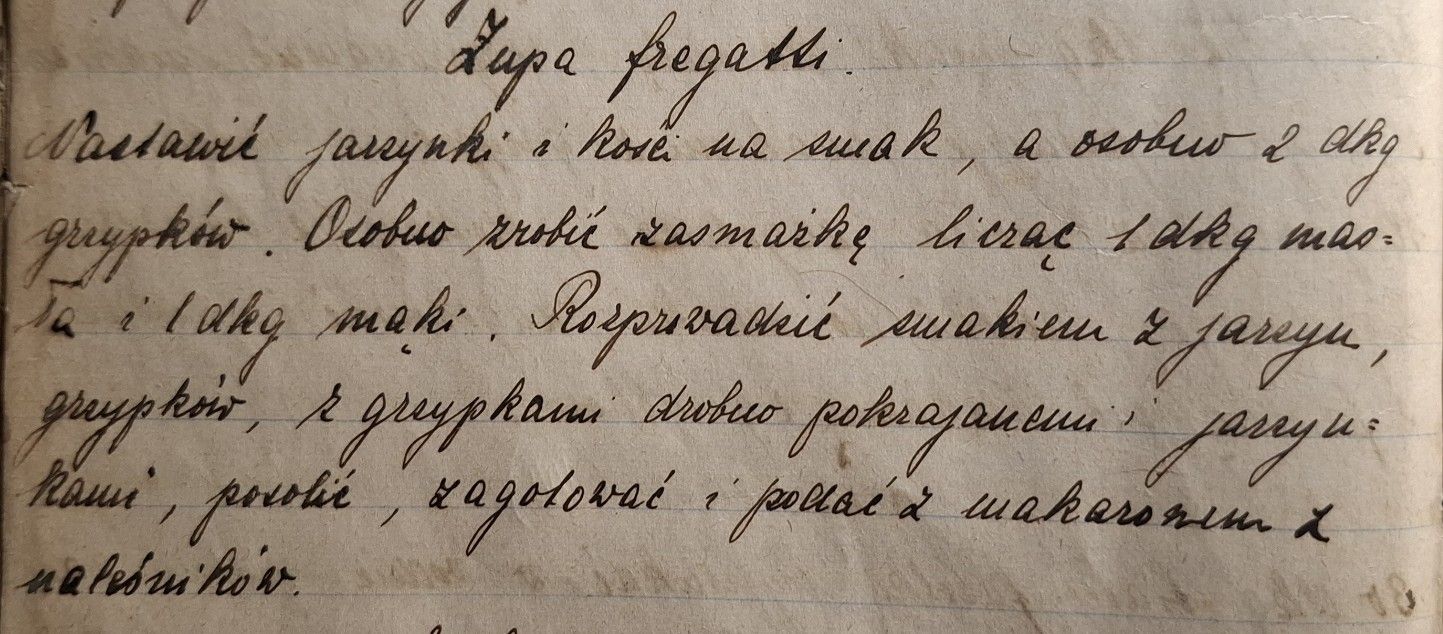 Zupa fregatti.
Nastawić jarzynki i kości na smak, a osobno 2 dkg
grzypków. Osobno zrobić zasmażkę licząc 1 dkg mas=
ła i 1 dkg mąki. Rozprowadzić smakiem z jarzyn,
grzypków, z grzypkami drobno pokrajanemi i jarzyn=
kami, posolić, zagotować i podać z makaronem z
naleśników.